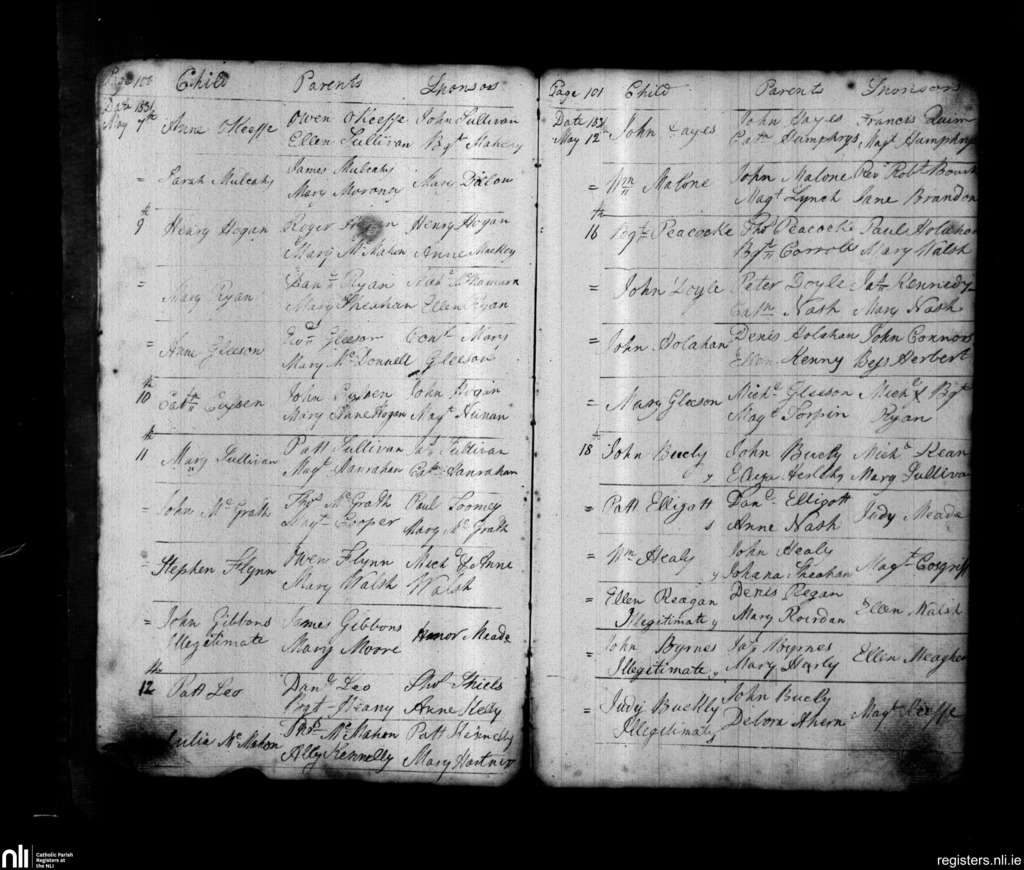 Page 100 Child Parents Sponsors
Date 1831
May 7th Anne O'Keeffe Owen O'Keeffe John Sullivan
Ellen Sullivan Bgt Mahery
= Sarah Mulcahy James Mulcahy
Mary Morony Mary Dillon
9th Henry Hogan Roger Hogan Henry Hogan
Mary McMahon Anne Mackey
= Mary Ryan Danl Ryan McNamara
Mary Sheahan Ellen Ryan
= Anne Gleeson Gleeson Mary
Mary McDonnell Gleeson
10th John Hogan
Mary Anne Hogan Magt
11th Mary Sullivan Patt Sullivan Jas Sullivan
Magt Hanrahan Cath Hanrahan
= John McGrath Thos McGrath Paul Toomey
Magt Cooper Mary McGrath
= Stephen Flynn Owen Flynn Michl & Anne
Mary Walsh Walsh
= John Gibbons James Gibbons
Illegitimate Mary Moore Honor Meade
12th Patt Leo Danl Leo Thos Shiels
Bgt Heany Anne Kelly
Julia McMahon Thos McMahon Patt Kennelly
Ally Kennelly Mary Hartnet
Page 101 Child Parents Sponsors
Date 1831
May 12 John Hayes John Hayes Francis Quin
Cath Humphrys Magt Humphrys
= Wm Malone John Malone Revd Robt Bourk
Magt Lynch Jane Brandon
16th Peacocke Thos Peacocke Paul Holahan
Bgt Carroll Mary Walsh
= John Doyle Peter Doyle Jas Kennedy
Cathn Nash Mary Nash
= John Holahan Denis Holahan John Connors
Ellen Kenny Bess Herbert
= Mary Gleeson Michl Gleeson Michl & Bgt
Magt Torpin Ryan
18th John Buckly John Buckly Michl Kean
Eliza Herlihy Mary Sullivan
= Patt Elligott Danl Elligott
Anne Nash Judy Meade
= Wm Healy John Healy
Johana Sheahan Magt Cosgriff
= Ellen Reagan Denis Regan
Illegitimate Mary Roirdan Ellen Walsh
= John Byrnes Jas Byrnes
Illegitimate Mary Ellen Meagher
= Judy Buckly John Buckly
Illegitimate Debora Ahern Magt Keeffe
nli
Catholic Parish
Registers at
the NLI
registers.nli.ie